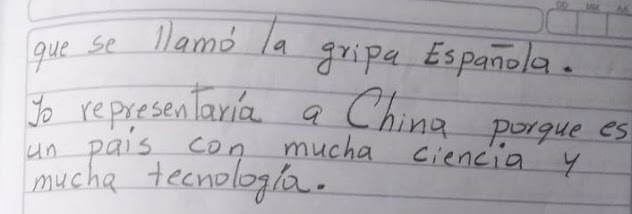 que se llamó la gripa Española.
Yo representaría a China porque es
un país con mucha ciencia y
mucha tecnología.